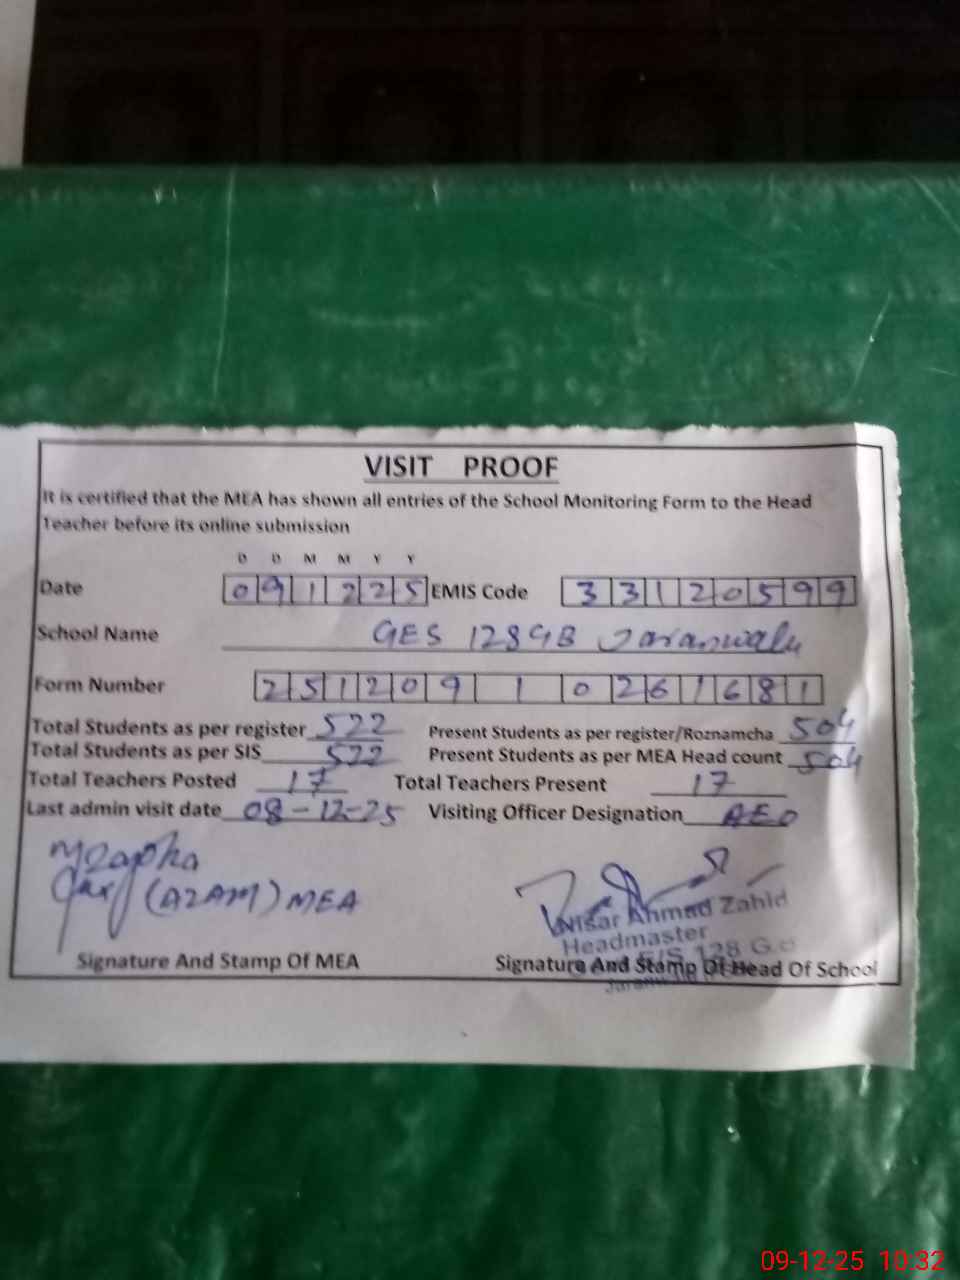 VISIT PROOF
It is certified that the MEA has shown all entries of the School Monitoring Form to the Head
Teacher before its online submission
D D M M Y Y
Date 091225 EMIS Code 33120599
School Name GES 128GB Jaranwala
Form Number 251209 1 0261681
Total Students as per register 522 Present Students as per register/Roznamcha 504
Total Students as per SIS 522 Present Students as per MEA Head count 504
Total Teachers Posted 17 Total Teachers Present 17
Last admin visit date 08-12-25 Visiting Officer Designation AEO
(AZAM) MEA
Nisar Ahmad Zahid
Headmaster
128 G.
Signature And Stamp Of MEA Signature And Stamp Of Head Of School
09-12-25 10:32